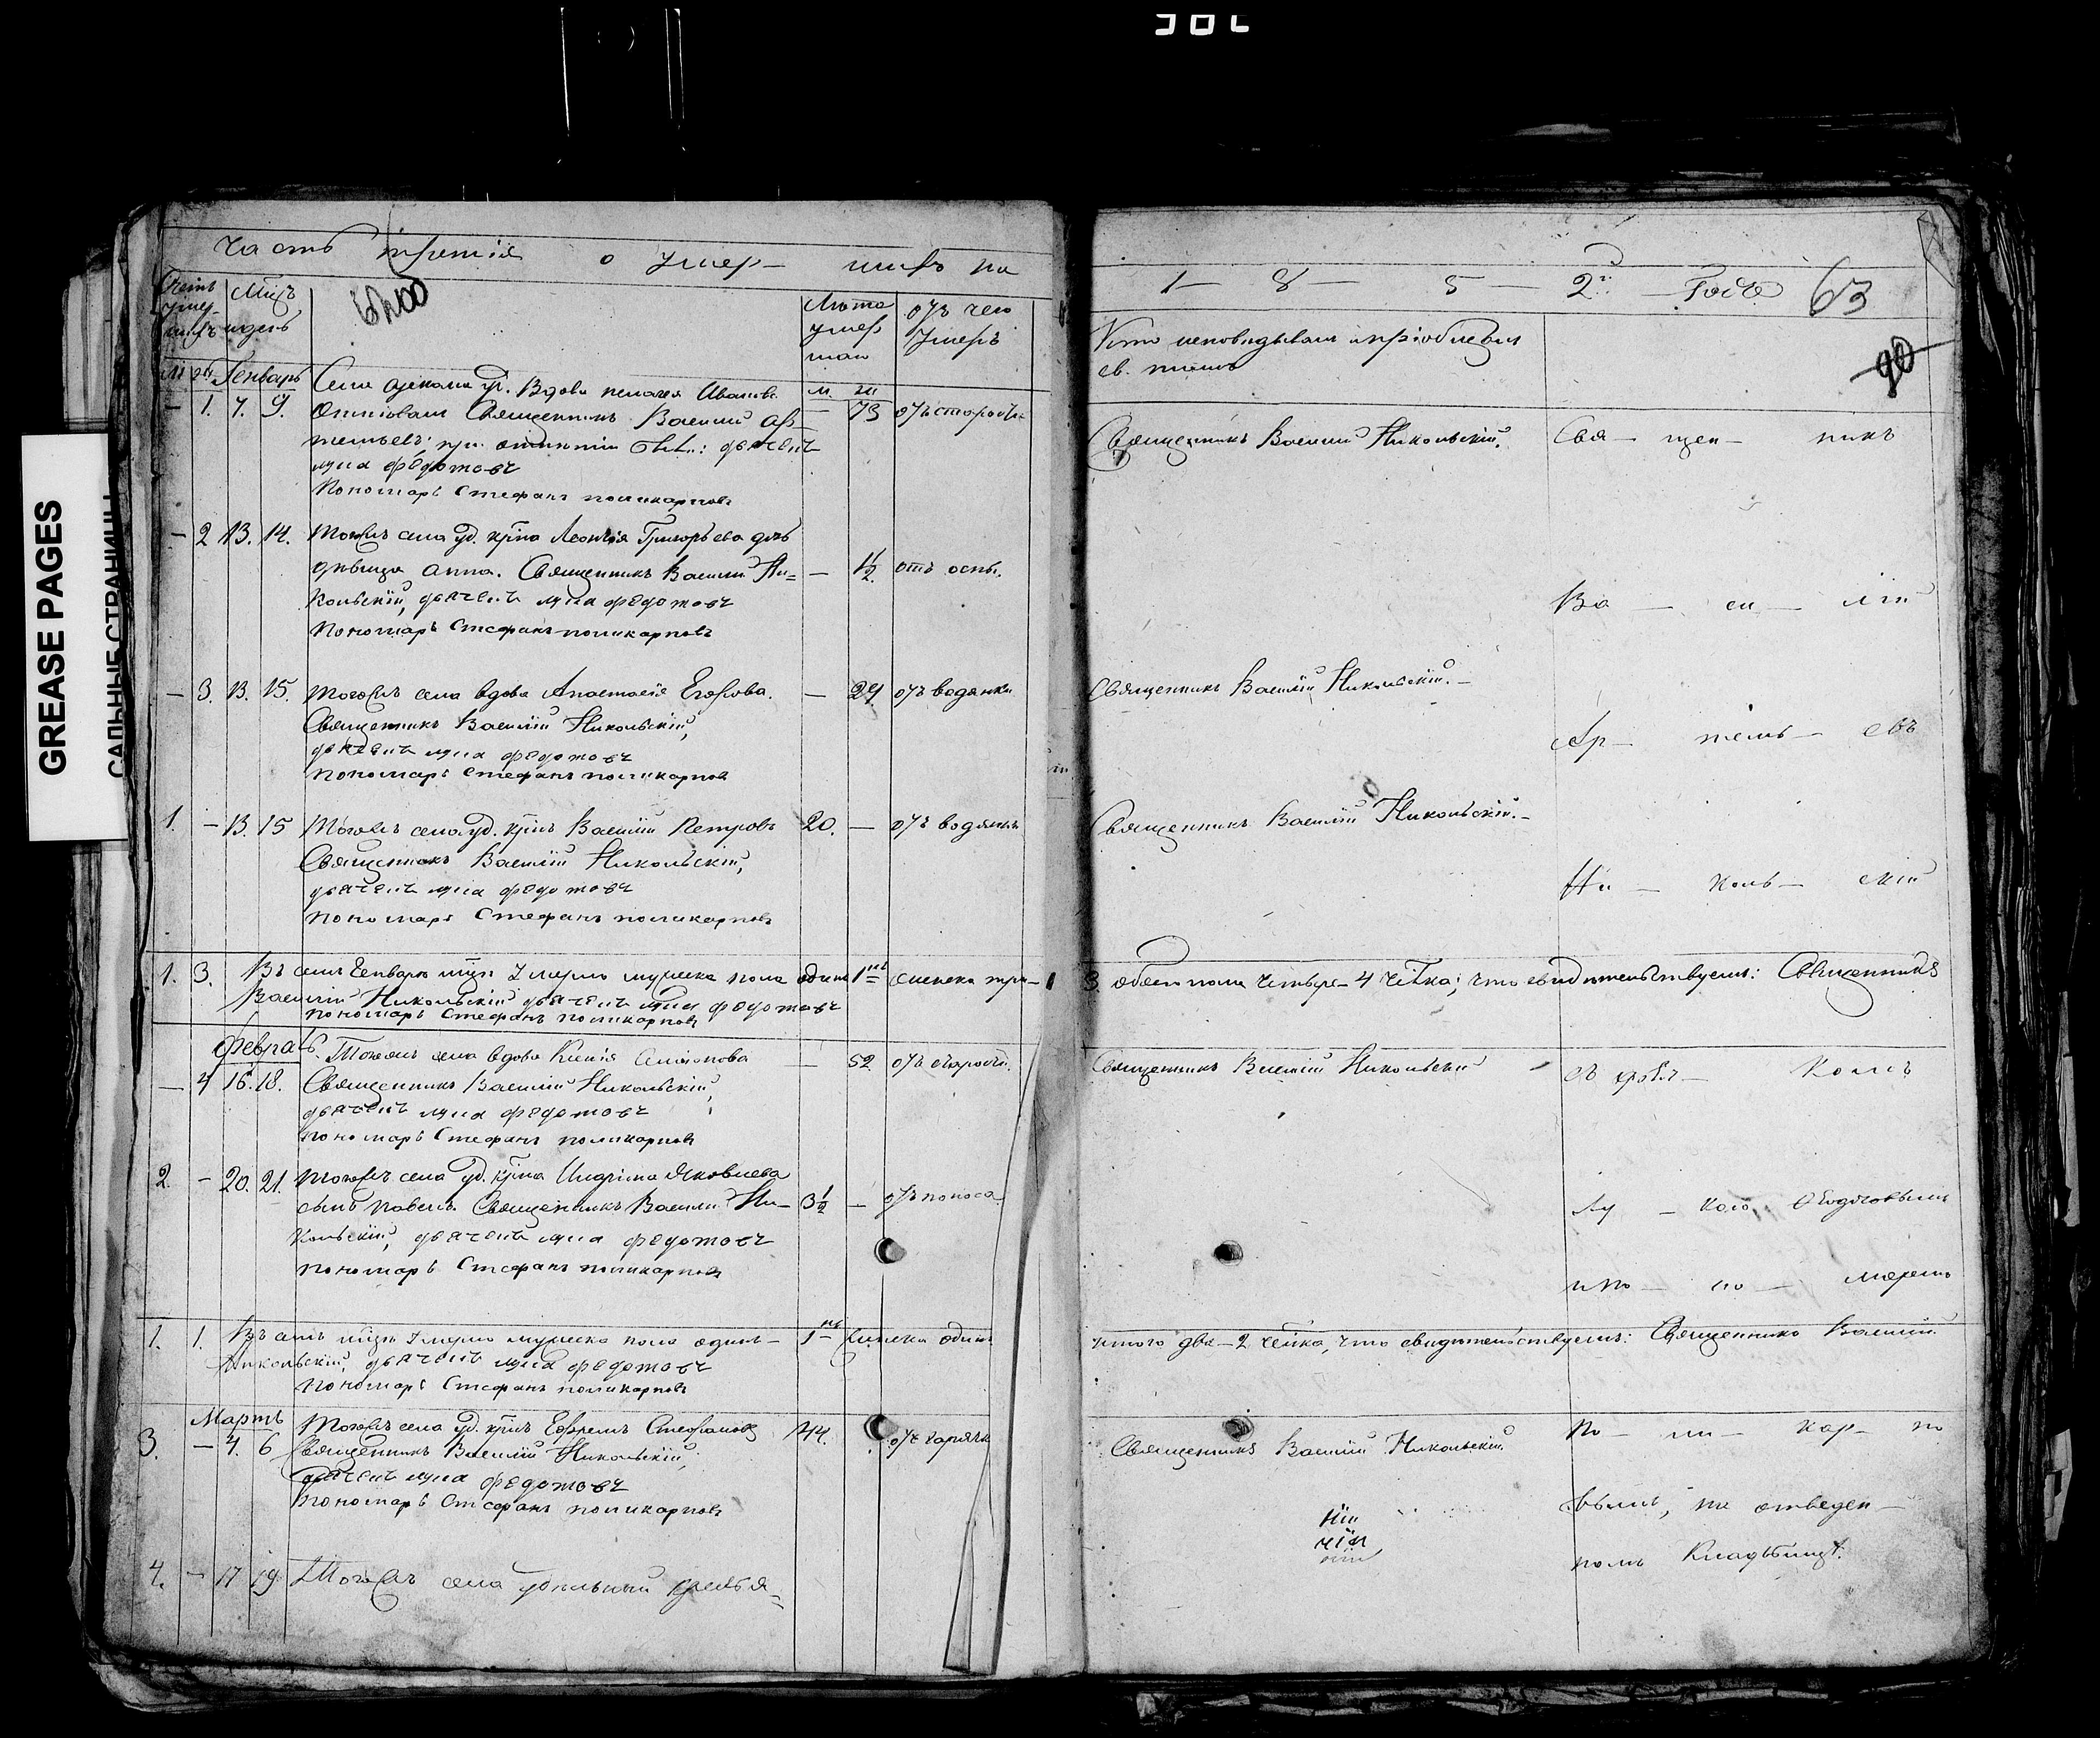 GREASE PAGES
САЛЬНЫЕ СТРАНИЦЫ
часть третія о умер- шихъ на
1- 8- 5- 2м Годъ 63
Счетъ умер- шихъ
Мцъ и день
Лѣта умер шаго
отъ чего умеръ
Кто исповѣдывалъ и пріобщалъ св. таинъ
90
м ж Генварь
м. ж
- 1. 7. 9. Села уд. Вдова Пелагея Иванова
- 73 отъ старости
Священникъ Василій Ар-
темьевъ; дьячекъ
лука федотовъ
Пономарь Стефанъ поликарповъ
Священникъ Василій Никольскій.
Свя- щен- никъ
- 2 13. 14. Тогожъ села уд. крᲇна Леонтія Григорьева дочь
дѣвица Анна. Священникъ Василій Ни-
- 1½ отъ оспы.
кольскій, дьячекъ лука федотовъ
Пономарь Стефанъ поликарповъ
Ва- си- лій
- 3. 13. 15. Тогожъ села вдова Анастасія Егорова.
- 29. отъ водянки
Священникъ Василій Никольскій,
дьячекъ лука федотовъ
пономарь Стефанъ поликарповъ
Священникъ Василій Никольскій.-
Ар- темь- евъ
1. - 13. 15 Тогожъ села уд. крнъ Василій Петровъ
20. - отъ водянки
Священникъ Василій Никольскій,
дьячекъ лука федотовъ
пономарь Стефанъ поликарповъ
Священникъ Василій Никольскій.-
Ни- коль- скій
1. 3. Въ семъ Генварѣ мцѣ Умерло мужеска пола одинъ 1нъ женска три-
3. обоего пола четыре- 4 члвка; что свидѣтельствуемъ: Священникъ
Василій Никольскій дьячекъ лука федотовъ
пономарь Стефанъ поликарповъ
февраль. Тогожъ села вдова Ксенія Симіонова
- 4 16. 18. - 52. отъ старости.
Священникъ Василій Никольскій,
дьячекъ лука федотовъ
пономарь Стефанъ поликарповъ
Священникъ Василій Никольскій
2. - 20. 21. Тогожъ села уд. крна Яковлева
сынъ павелъ. Священникъ Василій Ни-
3½ - отъ поноса
кольскій, дьячекъ лука федотовъ
пономарь Стефанъ поликарповъ
Лу- кою Федотовымъ
и по- но- маремъ
1. 1. Въ семъ мцѣ Умерло мужеска пола одинъ- 1нъ женска одинъ
итого два- 2 члвка, что свидѣтельствуемъ: Священникъ Василій
Никольскій, дьячекъ лука федотовъ
Пономарь Стефанъ поликарповъ
Мартъ
3. - 4. 6 Тогожъ села уд. крнъ Ефремъ Стефановъ
44. отъ горячк
Священникъ Василій Никольскій,
дьячекъ лука федотовъ
пономарь Стефанъ поликарповъ
Священникъ Василій Никольскій
По- ли- кар- по
вымъ, на отведен-
номъ Кладбищѣ.
4. - 17 19. Тогожъ села удѣльный крестья-